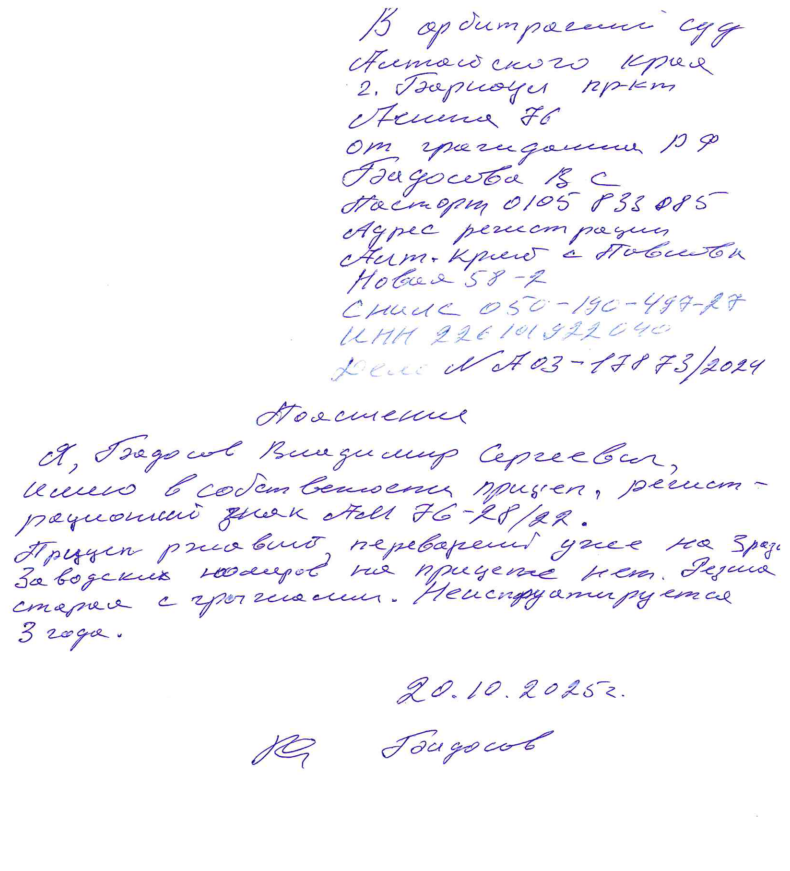 В арбитражный суд
Алтайского края
г. Барнаул пр-кт
Ленина 76
от гражданина РФ
В С
Паспорт 0105 833 085
Адрес регистрации
Алт. край с
Новая 58-2
Снилс 050-190-497-27
ИНН 226101922040
Дело N А03-17873/2024
Пояснение
Я, Владимир Сергеевич,
имею в собственности прицеп, регист-
рационный знак АМ 76-28/22.
Прицеп ржавый, переварен уже на 3 раза
Заводских номеров на прицепе нет. Резина
старая с грыжами. Неиспруатируется
3 года.
20.10.2025г.